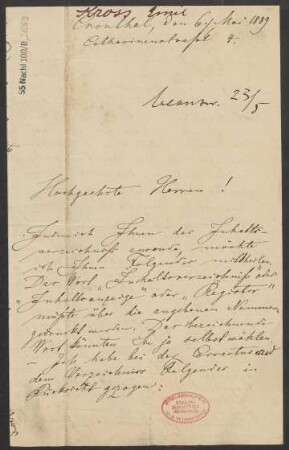 Kross Emil
den 6. Mai 1889
4.
23/5
Hochgeehrte Herren!
Indem ich Ihnen das Inhalts-
verzeichniß möchte
ich Ihnen Folgendes mittheilen.
Das Wort „Inhaltsverzeichniß“ oder
„Inhaltsanzeige“ oder „Register“
müßte über die angegebenen Nummern
gedruckt werden. Das bezeichnende
Wort könnten Sie ja selbst wählen.
Ich habe bei der Correctur und
dem Verzeichniss Folgendes in
Rücksicht gezogen:
55 Nachl 100/B